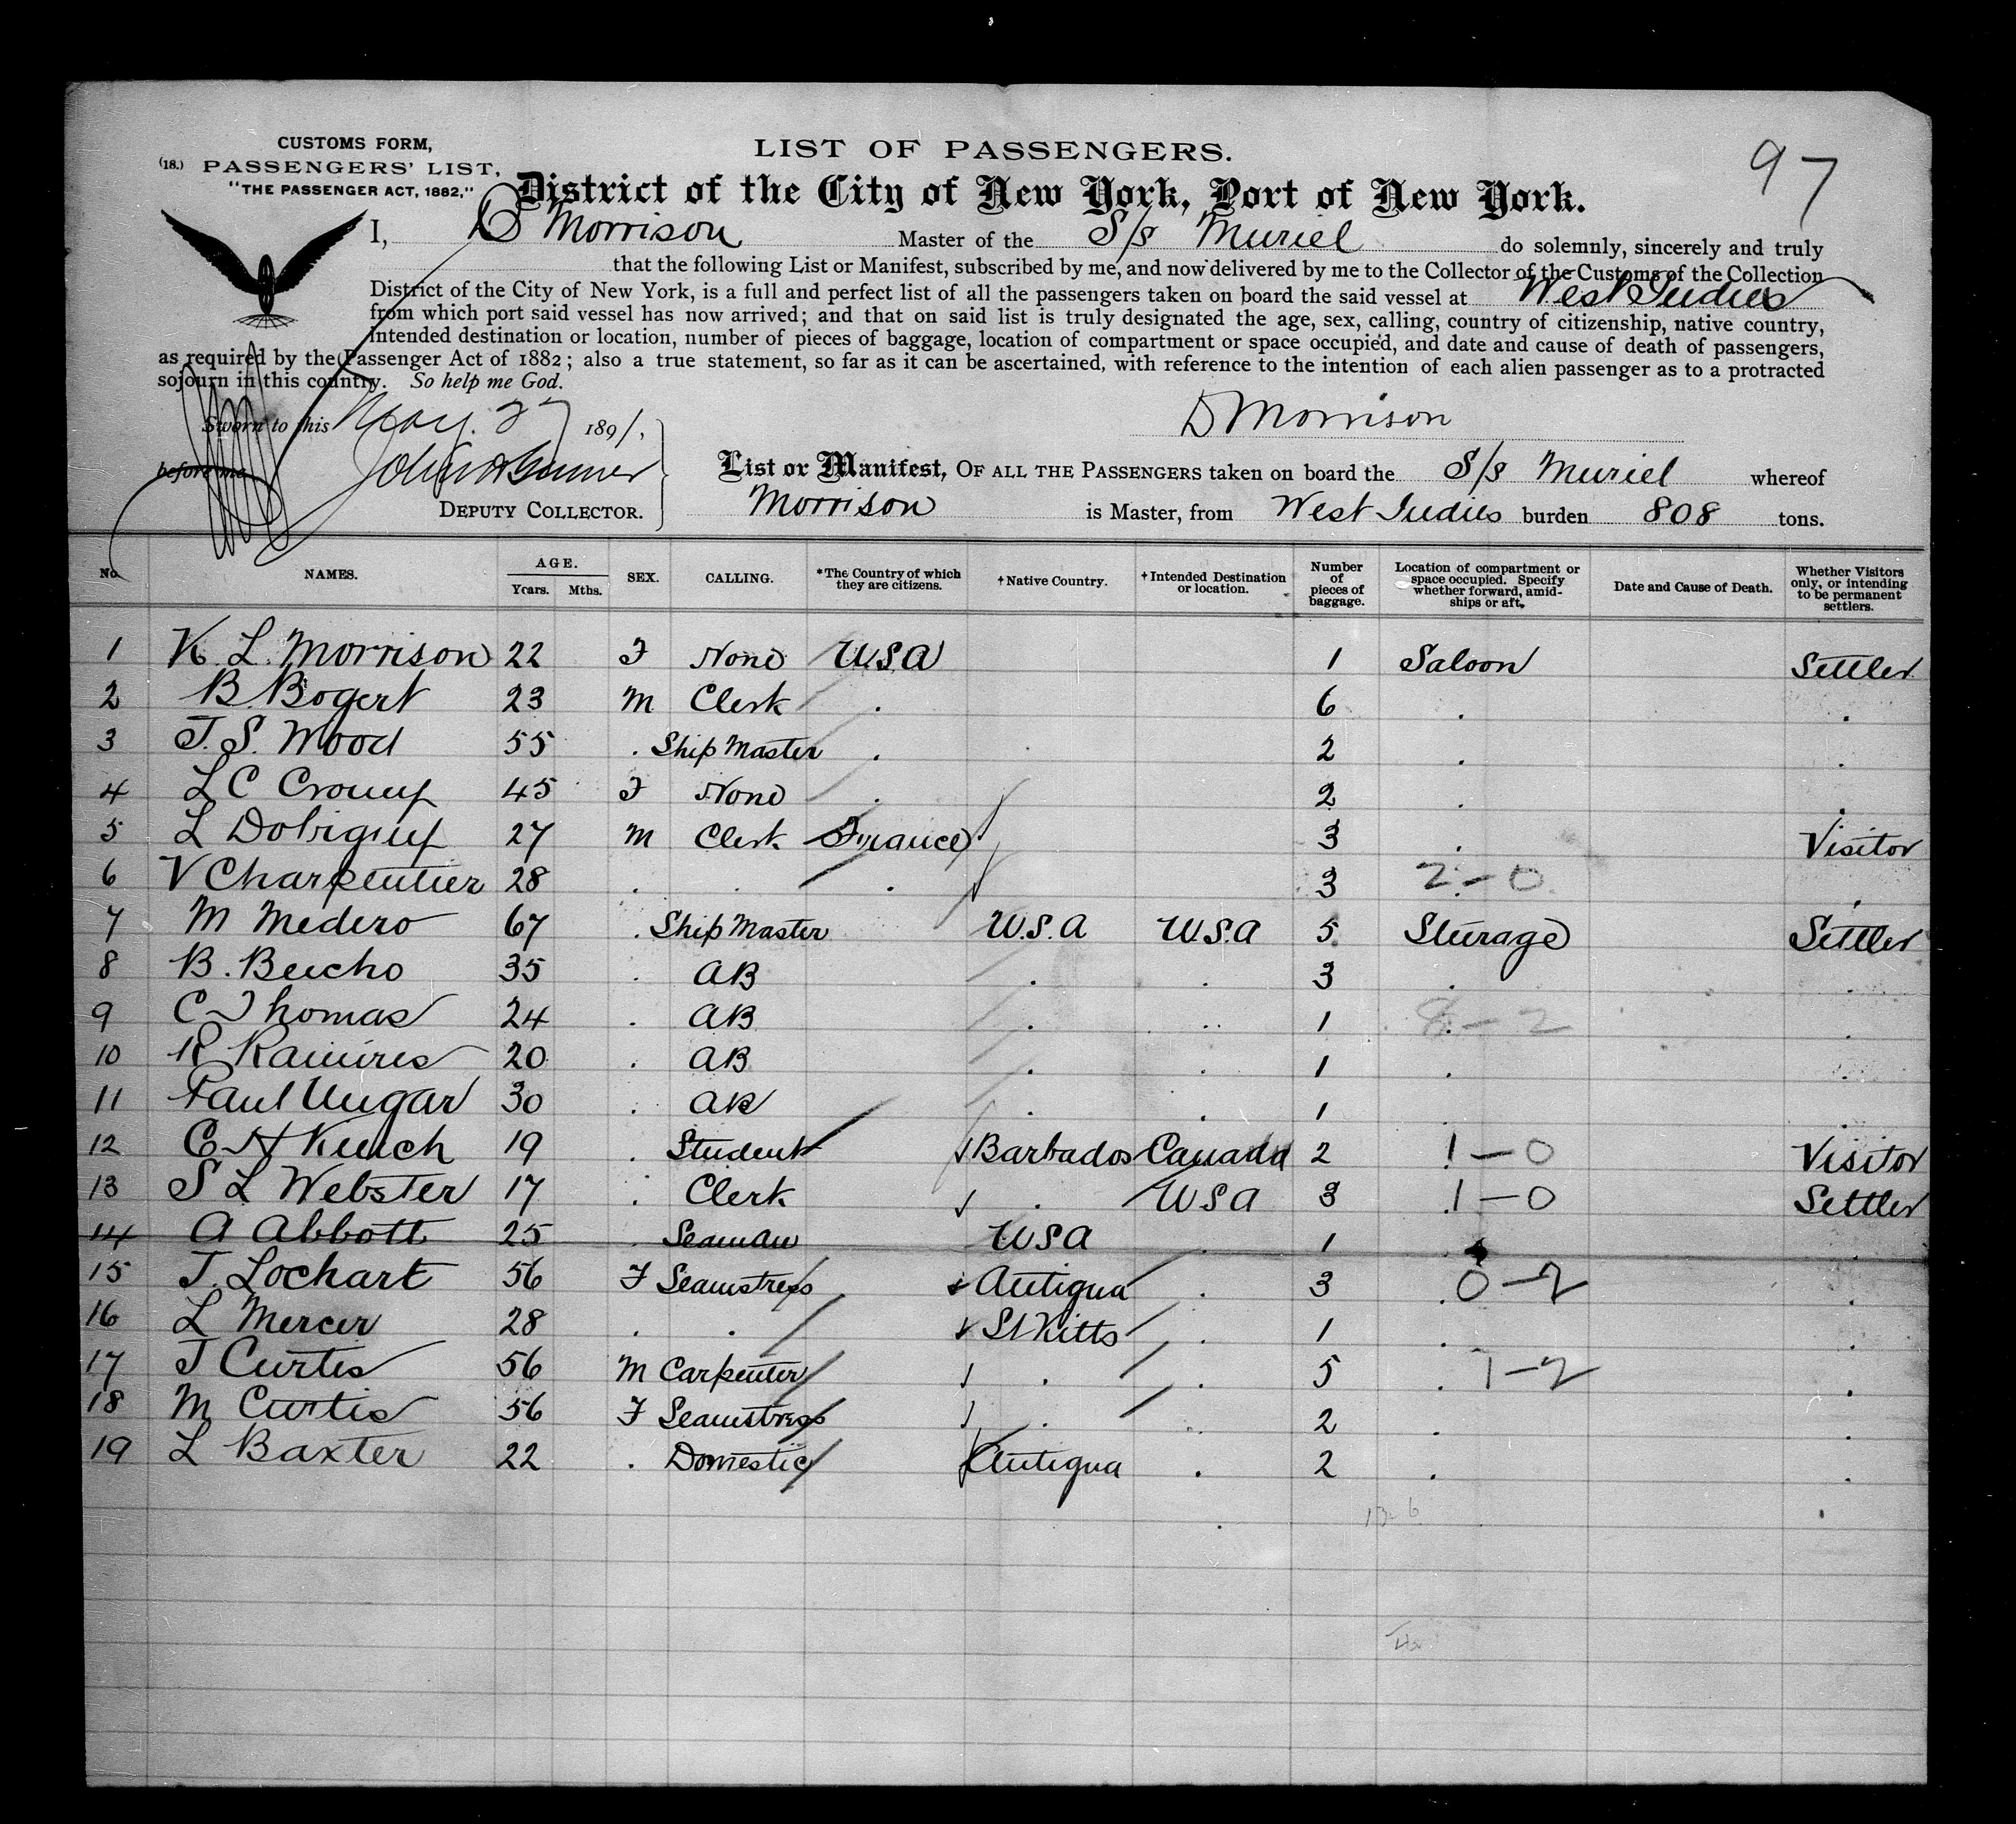 CUSTOMS FORM,
(18.) PASSENGERS' LIST,
"THE PASSENGER ACT, 1882,"
LIST OF PASSENGERS.
97
District of the City of New York, Port of New York.
I, D Morrison Master of the S/s Muriel do solemnly, sincerely and truly
that the following List or Manifest, subscribed by me, and now delivered by me to the Collector of the Customs of the Collection
District of the City of New York, is a full and perfect list of all the passengers taken on board the said vessel at West Indies
from which port said vessel has now arrived; and that on said list is truly designated the age, sex, calling, country of citizenship, native country,
intended destination or location, number of pieces of baggage, location of compartment or space occupied, and date and cause of death of passengers,
as required by the Passenger Act of 1882; also a true statement, so far as it can be ascertained, with reference to the intention of each alien passenger as to a protracted
sojourn in this country. So help me God.
Sworn to this May. 27 1891.
D Morrison
before me
DEPUTY COLLECTOR.
List or Manifest, OF ALL THE PASSENGERS taken on board the S/s Muriel whereof
Morrison is Master, from West Indies burden 808 tons.
No. NAMES. AGE. Years. Mths. SEX. CALLING. *The Country of which they are citizens. †Native Country. †Intended Destination or location. Number of pieces of baggage. Location of compartment or space occupied. Specify whether forward, amidships or aft. Date and Cause of Death. Whether Visitors only, or intending to be permanent settlers.
1 K. L. Morrison 22 F None USA 1 Saloon Settler
2 B. Bogert 23 M Clerk . 6 . .
3 J. S. Wood 55 . Ship Master . 2 . .
4 L C 45 F None . 2 . .
5 L 27 M Clerk France 3 . Visitor
6 V Charpentier 28 . . . 3 2-0 .
7 M Medero 67 . Ship Master U.S.A U.S.A 5 Sturage Settler
8 B. 35 . AB . . 3 . .
9 C Thomas 24 . AB . . 1 . 8-2 .
10 R Ramires 20 . AB . . 1 . .
11 Paul Ungar 30 . AB . . 1 .
12 19 . Student Barbados Canada 2 1-0 Visitor
13 S L Webster 17 . Clerk . USA 3 1-0 Settler
14 A Abbott 25 . Seaman USA . 1 .
15 J. Lochart 56 F Seamstress Antigua . 3 . 0-2 .
16 L Mercer 28 . . St Kitts . 1 . .
17 J Curtis 56 M Carpenter . . 5 . 7-2 .
18 M Curtis 56 F Seamstress . . 2 . .
19 L Baxter 22 . Domestic Antigua . 2 . .
13-6